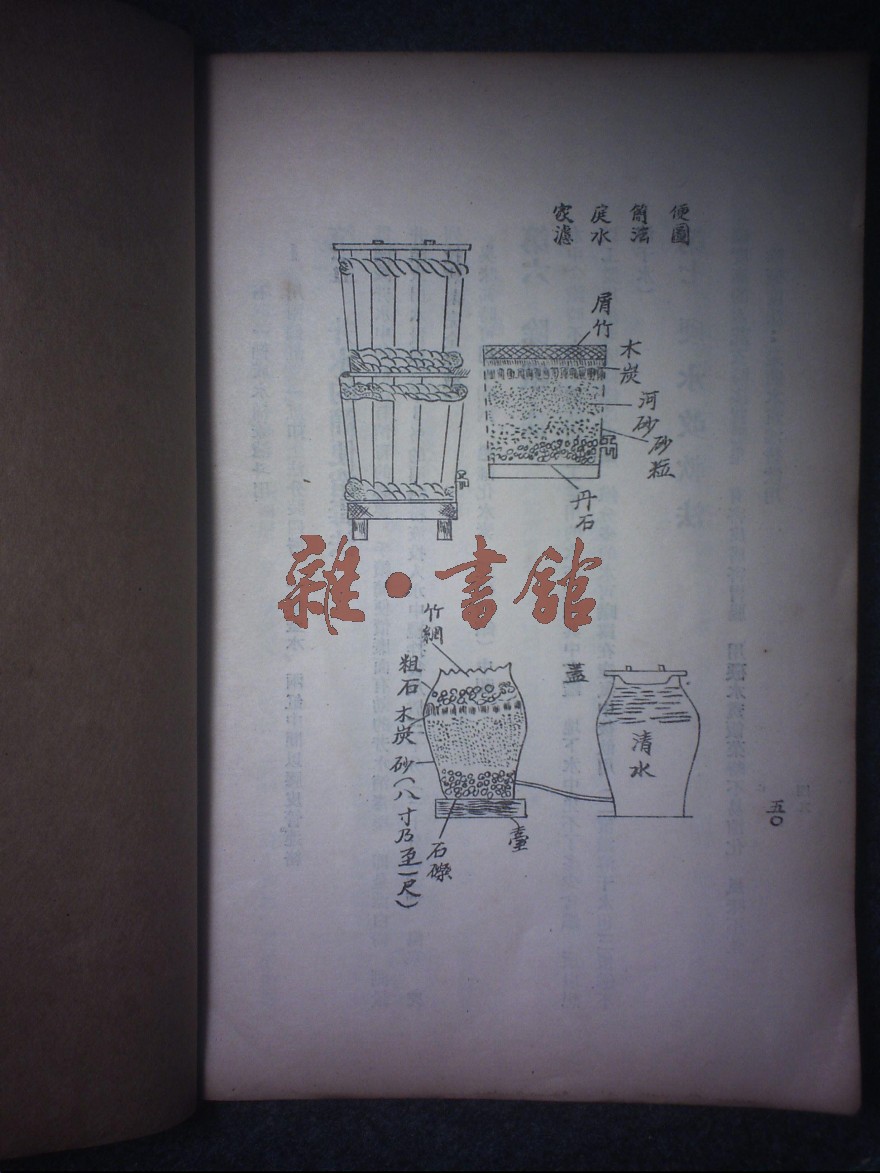 家庭簡便
濾水法圖
屑竹
木炭
河砂
砂粒
丹石
雜·書館
竹網
粗石
木炭
砂(八寸乃至一尺)
石礫
臺
蓋
清水
五〇